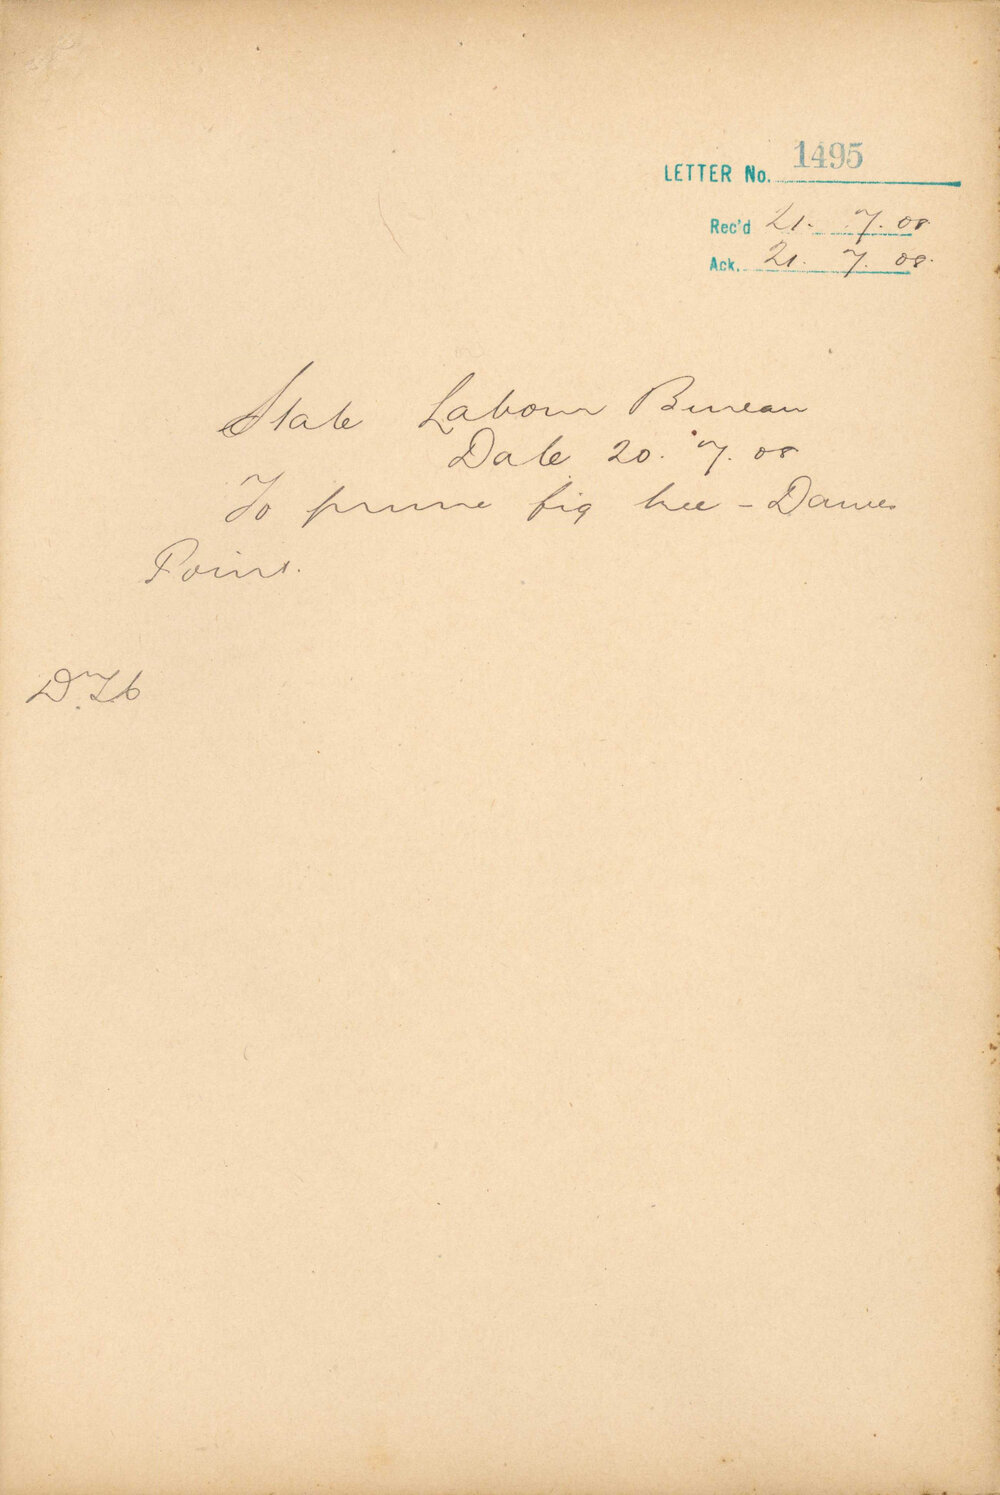 LETTER No. 1495
Rec'd 21. 7. 08
Ack. 21. 7. 08.
State Labour Bureau
Date 20. 7. 08
To prune fig tree - Dawes
Point.